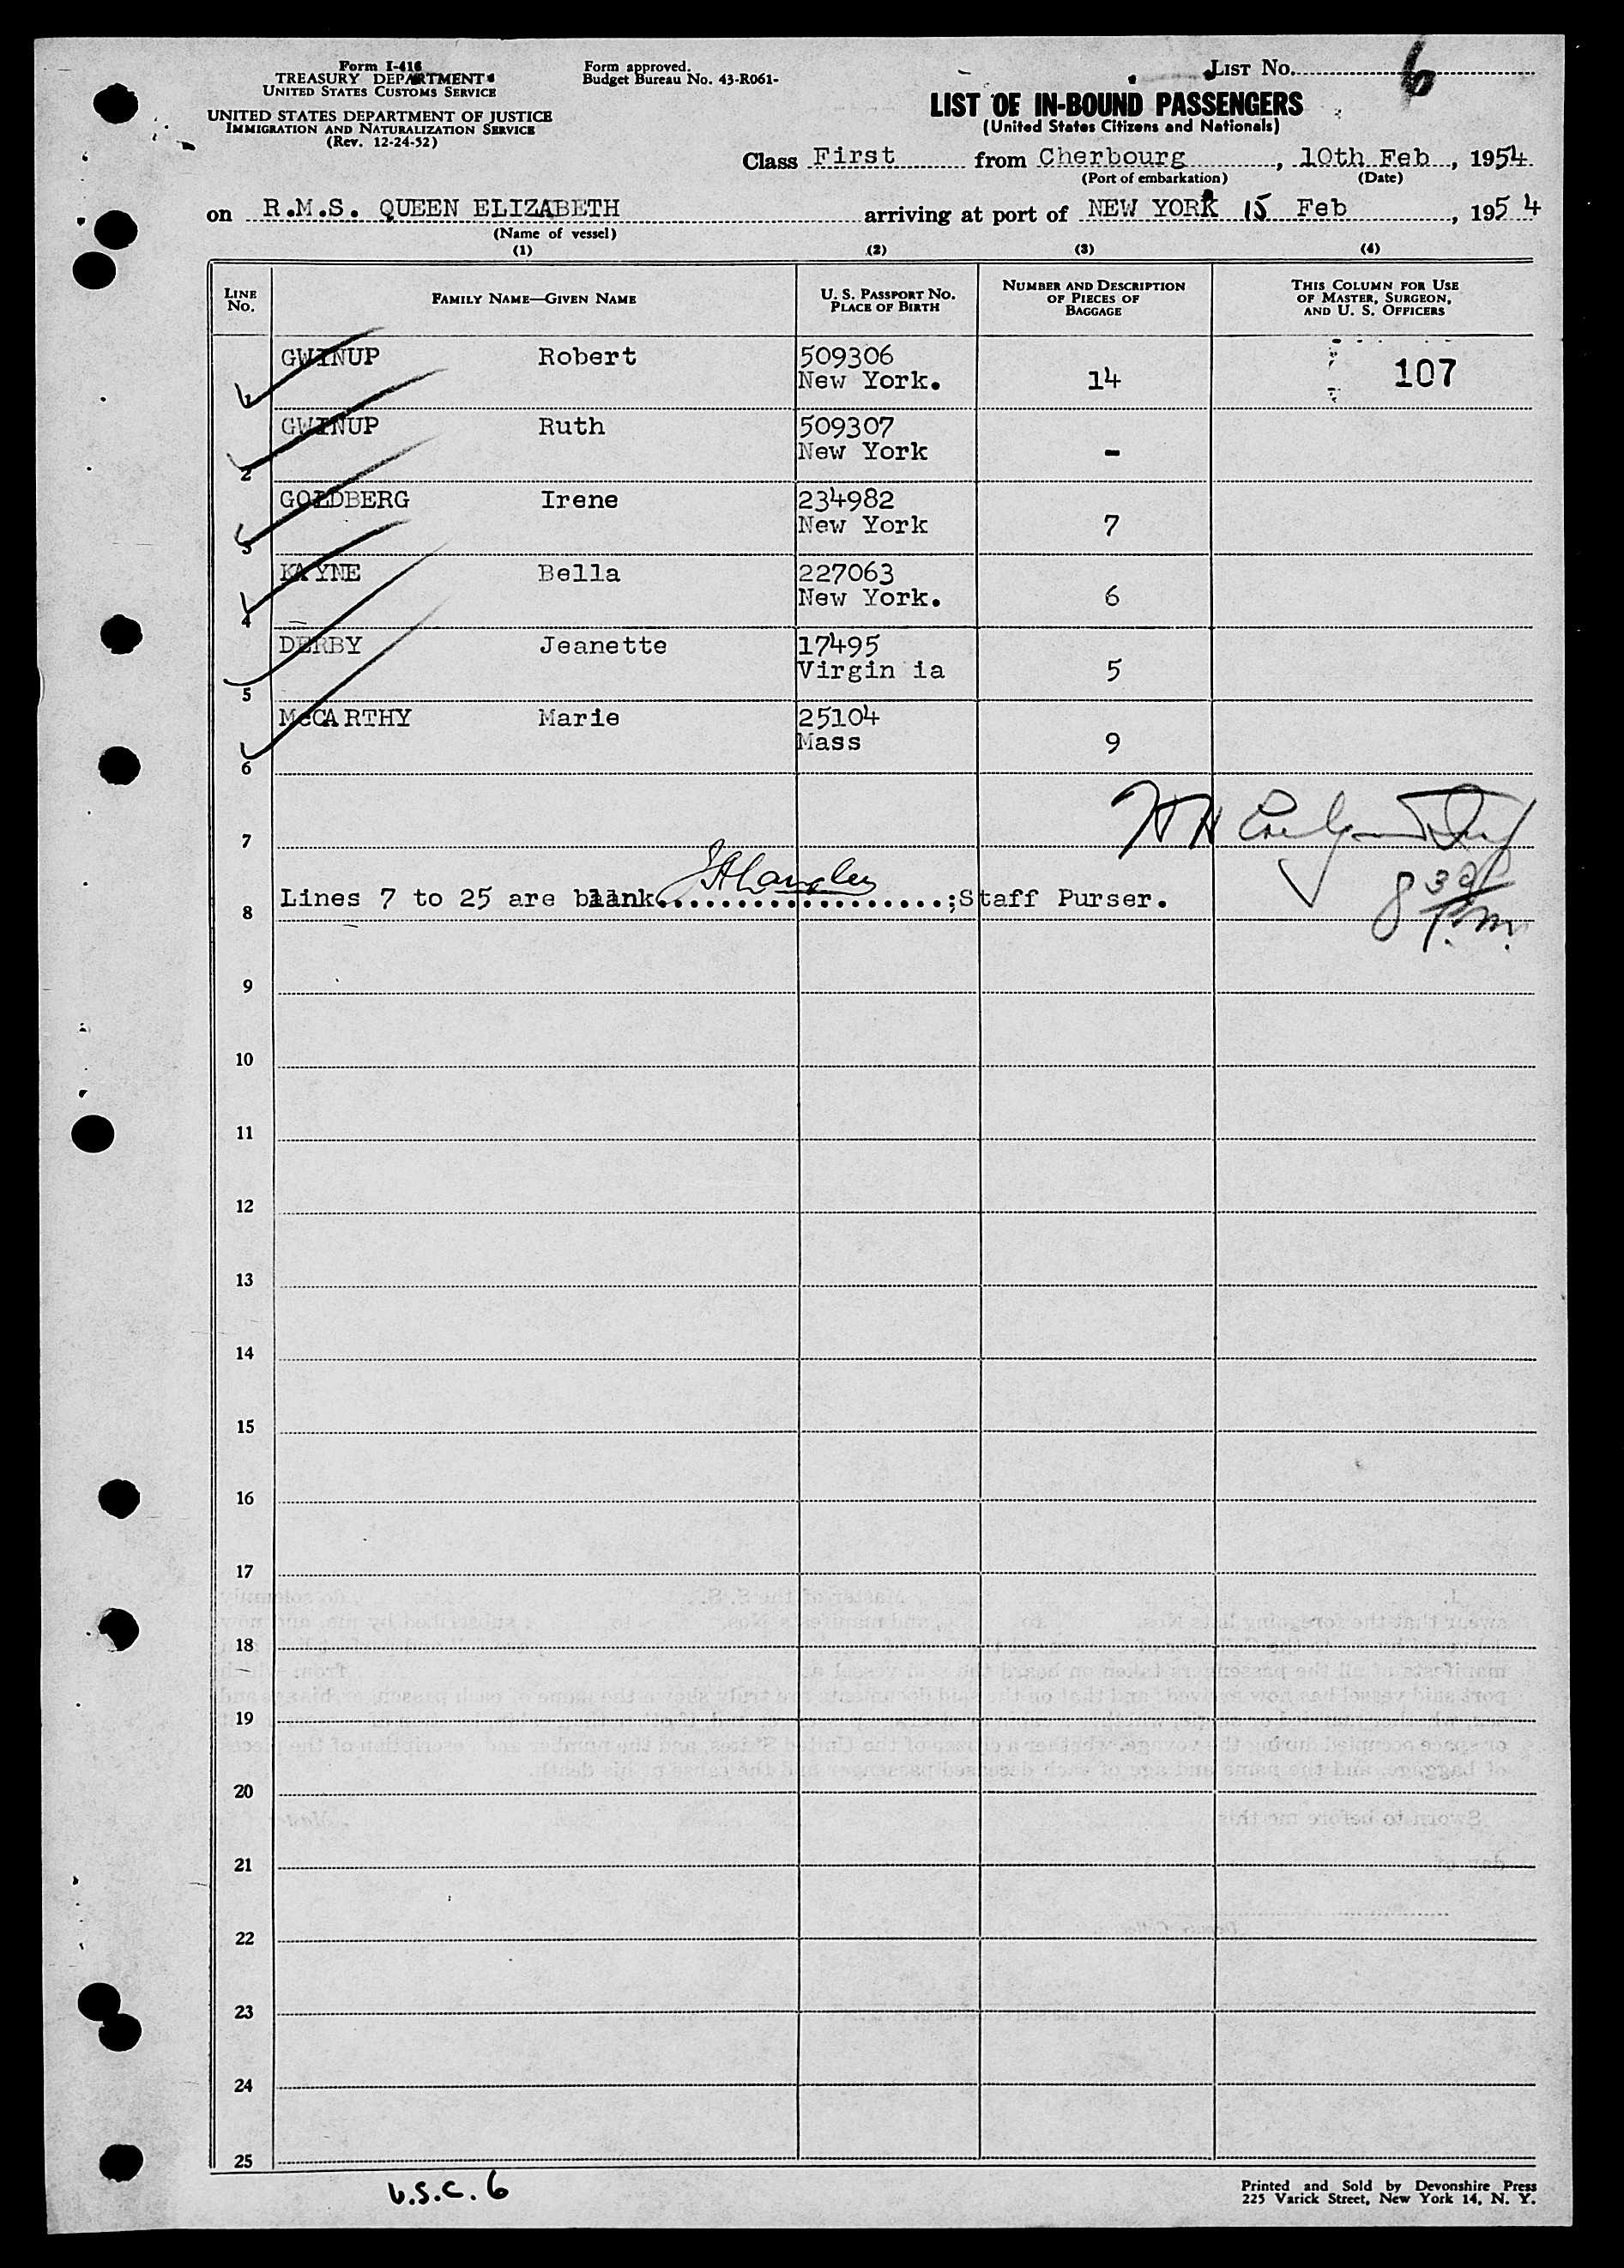 Form I-416
TREASURY DEPARTMENT
UNITED STATES CUSTOMS SERVICE
UNITED STATES DEPARTMENT OF JUSTICE
IMMIGRATION AND NATURALIZATION SERVICE
(Rev. 12-24-52)
Form approved.
Budget Bureau No. 43-R061-
LIST No. 6
LIST OF IN-BOUND PASSENGERS
(United States Citizens and Nationals)
Class First from Cherbourg, 10th Feb, 1954
(Port of embarkation) (Date)
on R.M.S. QUEEN ELIZABETH arriving at port of NEW YORK 15 Feb, 1954
(Name of vessel)
(1) (2) (3) (4)
LINE No. FAMILY NAME—GIVEN NAME U. S. PASSPORT No. PLACE OF BIRTH NUMBER AND DESCRIPTION OF PIECES OF BAGGAGE THIS COLUMN FOR USE OF MASTER, SURGEON, AND U. S. OFFICERS
1 GWINUP Robert 509306 New York. 14 107
2 GWINUP Ruth 509307 New York -
3 GOLDBERG Irene 234982 New York 7
4 KAYNE Bella 227063 New York. 6
5 DERBY Jeanette 17495 Virgin ia 5
6 McCARTHY Marie 25104 Mass 9
7
8 Lines 7 to 25 are blank..................;Staff Purser.
9
10
11
12
13
14
15
16
17
18
19
20
21
22
23
24
25
U.S.C. 6
Printed and Sold by Devonshire Press
225 Varick Street, New York 14, N. Y.